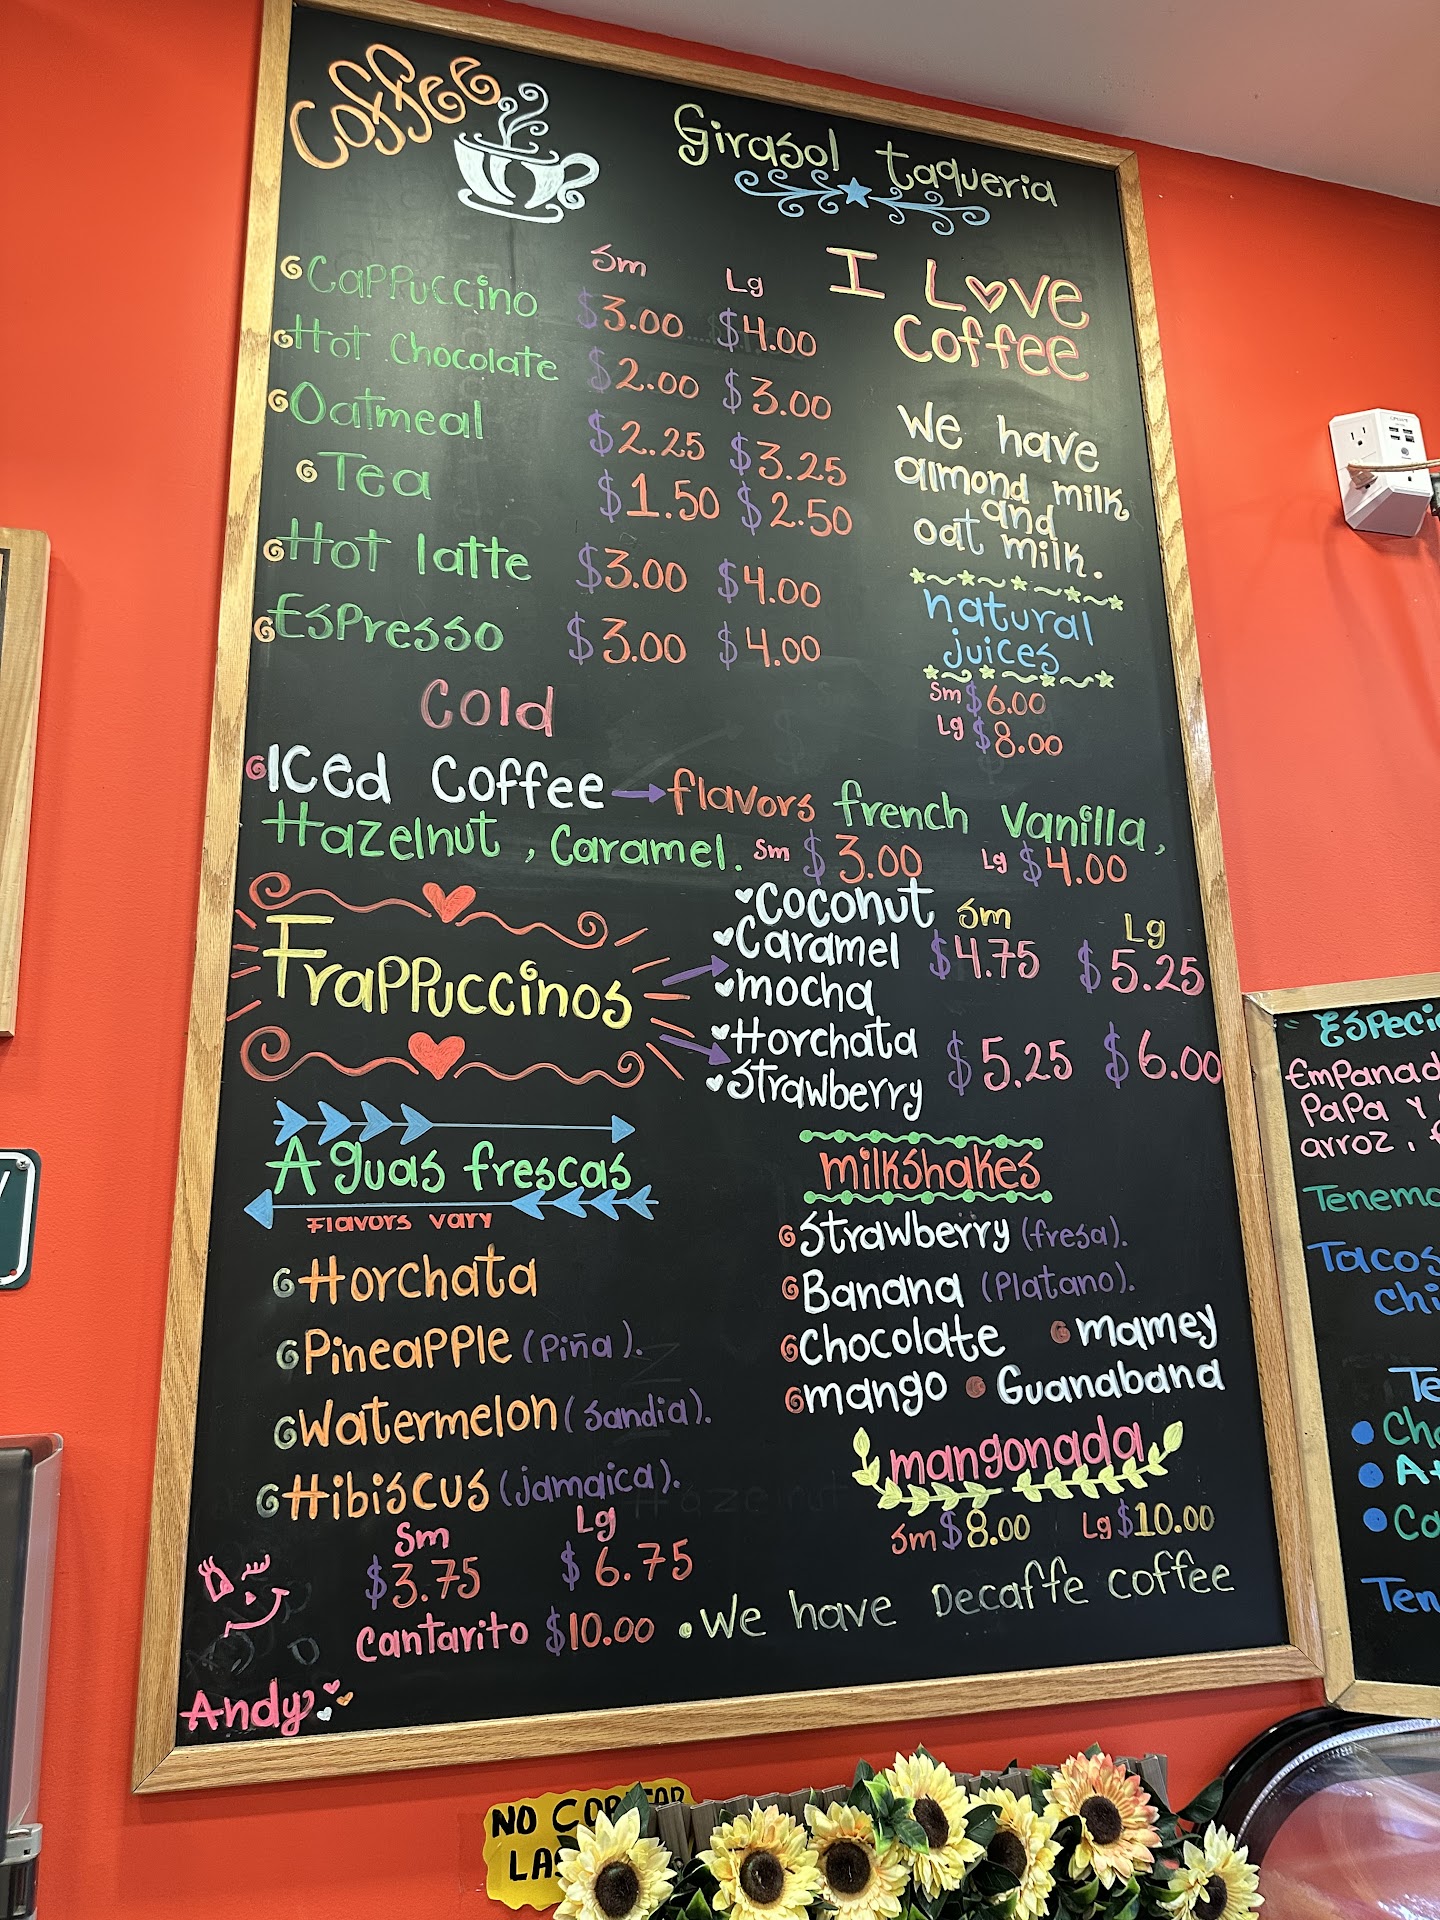 Coffee
Girasol taqueria
Sm Lg
Cappuccino $3.00 $4.00
Hot Chocolate $2.00 $3.00
Oatmeal $2.25 $3.25
Tea $1.50 $2.50
Hot latte $3.00 $4.00
Espresso $3.00 $4.00
I Love
Coffee
We have
almond milk
and
oat milk.
natural
juices
Sm $6.00
Lg $8.00
Cold
Iced Coffee → flavors french Vanilla,
Hazelnut, Caramel. Sm $3.00 Lg $4.00
Frappuccinos
Coconut Sm Lg
Caramel $4.75 $5.25
mocha
Horchata $5.25 $6.00
Strawberry
Aguas frescas
Flavors vary
Horchata
Pineapple (Piña).
Watermelon (Sandia).
Hibiscus (jamaica).
Sm Lg
$3.75 $6.75
Cantarito $10.00
milkshakes
Strawberry (fresa).
Banana (Platano).
Chocolate mamey
mango Guanabana
mangonada
Sm $8.00 Lg $10.00
• We have Decaffe coffee
Andy
Empanad
Papa y
arroz,
Tenemo
Tacos
NO
LAS